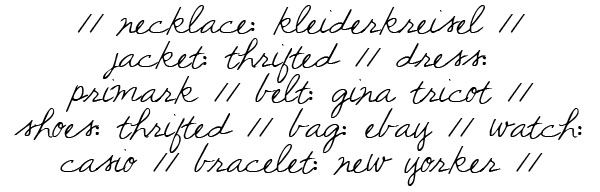 // necklace: kleiderkreisel //
jacket: thrifted // dress:
primark // belt: gina tricot //
shoes: thrifted // bag: ebay // watch:
casio // bracelet: new yorker //